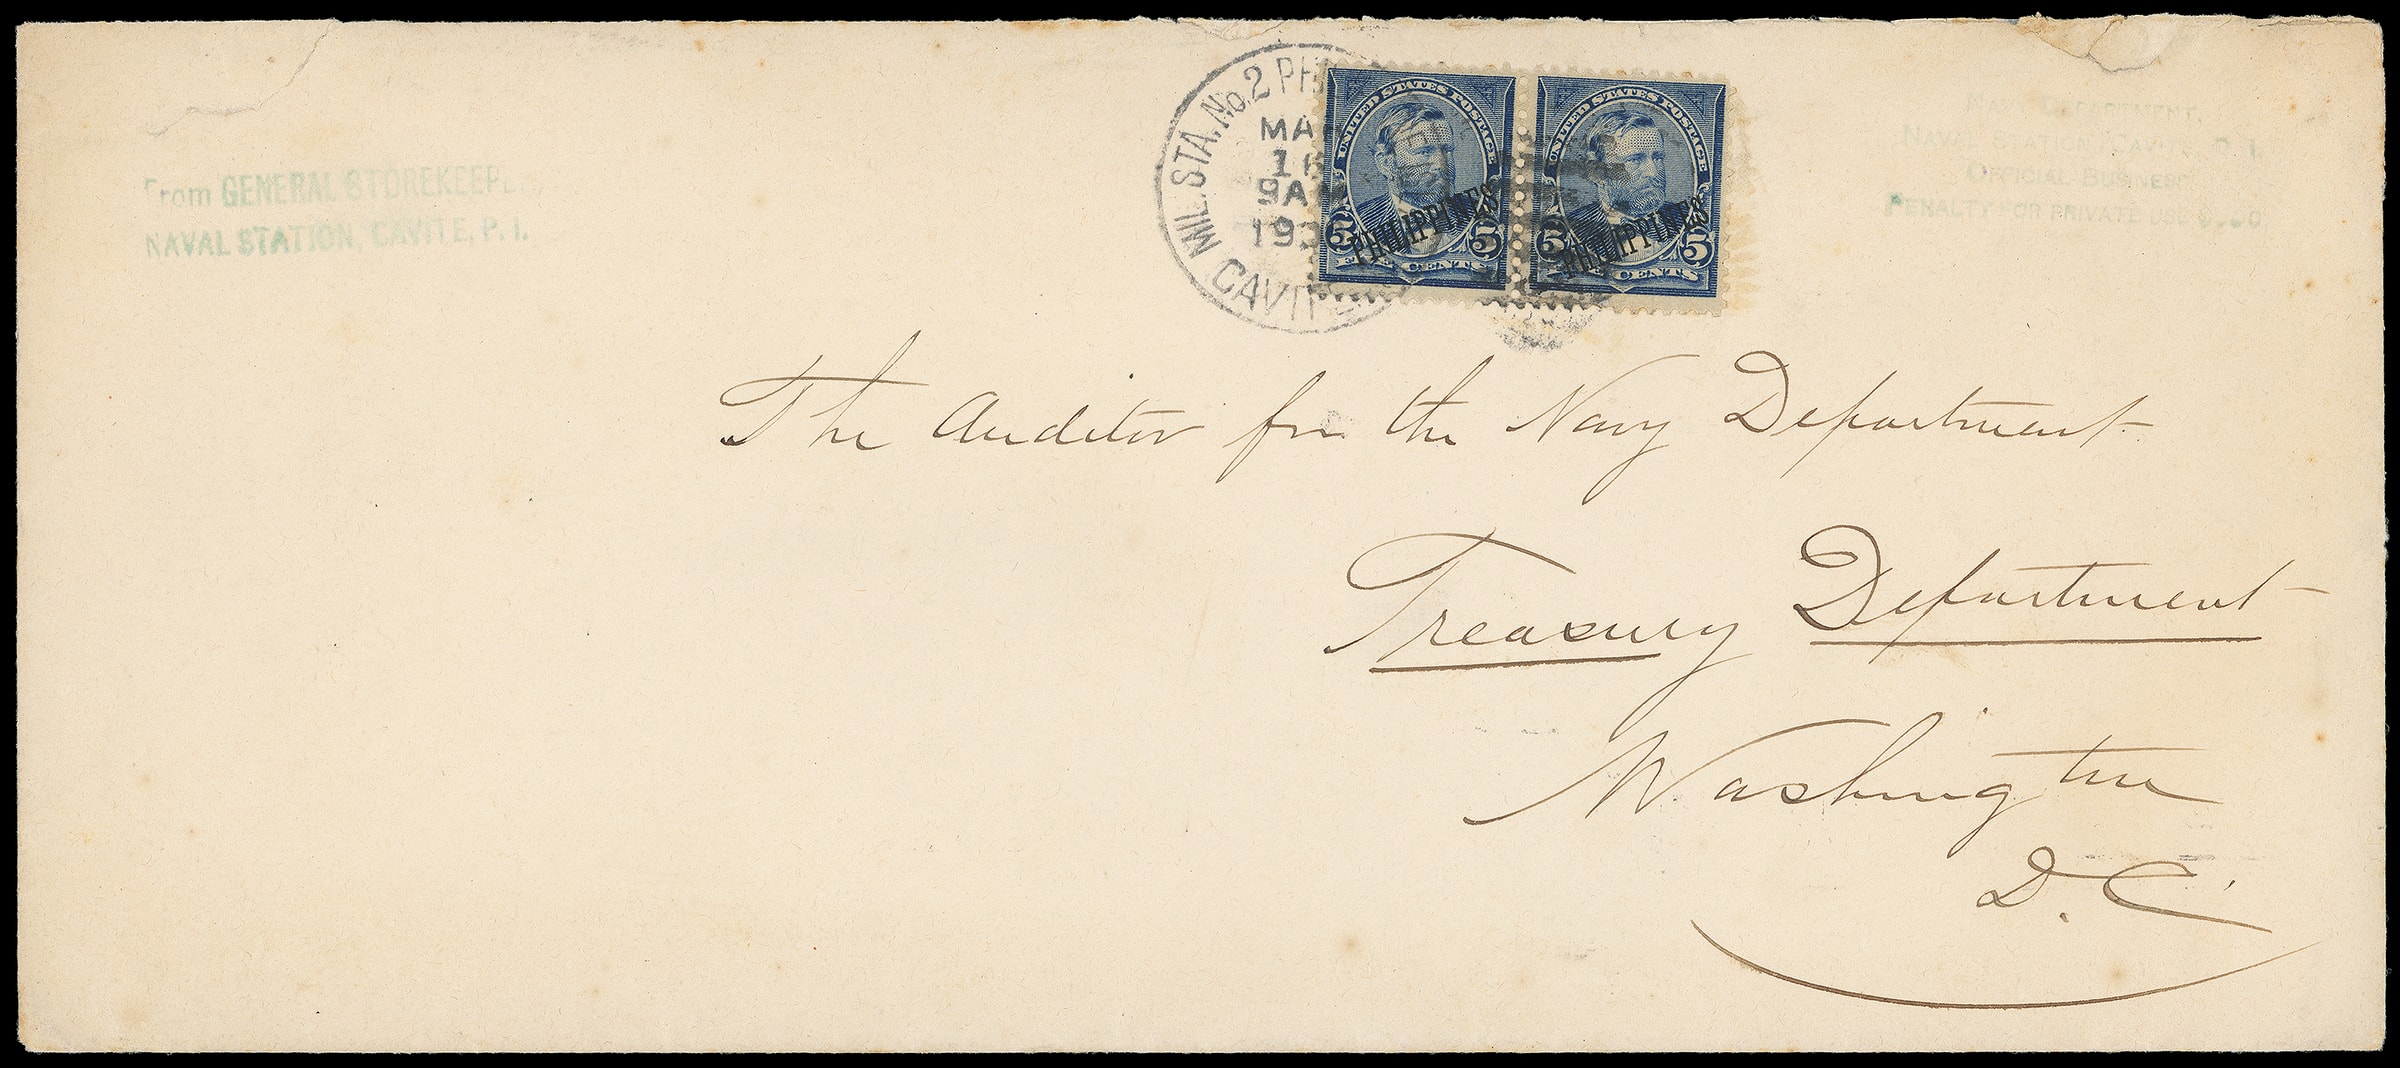 From GENERAL STOREKEEPER
NAVAL STATION, CAVITE, P. I.
MIL. STA. No. 2 PH
MAR
16
9AM
CAVITE
UNITED STATES POSTAGE
PHILIPPINES
5 5
FIVE CENTS
UNITED STATES POSTAGE
PHILIPPINES
5 5
CENTS
NAVY DEPARTMENT,
NAVAL STATION, CAVITE, P. I.
OFFICIAL BUSINESS
PENALTY FOR PRIVATE USE $300
The Auditor for the Navy Department
Treasury Department
Washington
D. C.